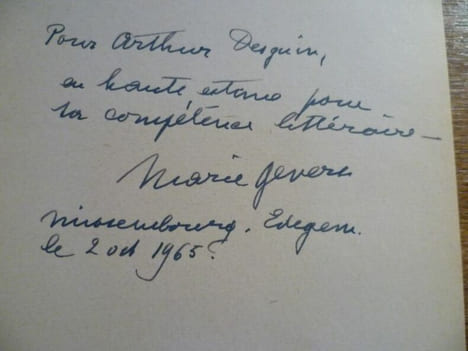 Pour Arthur Desguin,
en haute estime pour
sa compétence littéraire –
Marie Gevers
Missembourg. Edegem.
le 2 oct 1965.